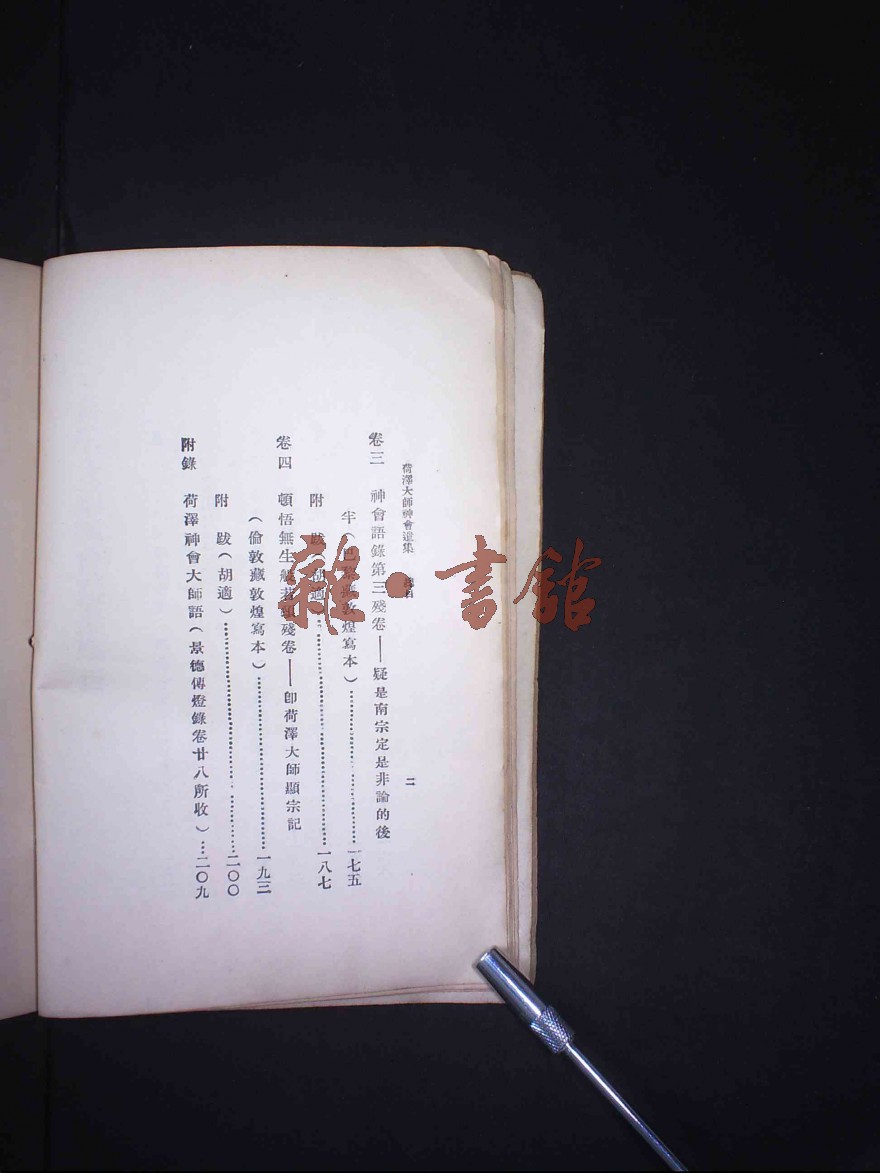 荷澤大師神會遺集　　二
卷三　神會語錄第三殘卷——疑是南宗定是非論的後
半（巴黎藏敦煌寫本）……一七五
附　跋（胡適）……一八七
卷四　頓悟無生般若頌殘卷——卽荷澤大師顯宗記
（倫敦藏敦煌寫本）……一九三
附　跋（胡適）……二〇〇
附錄　荷澤神會大師語（景德傳燈錄卷廿八所收）…二〇九
雜·書館